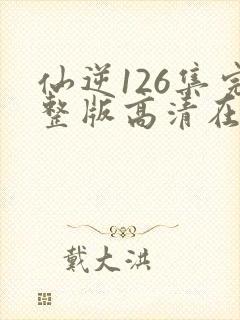 仙逆126集完
整版高清在
戴大洪